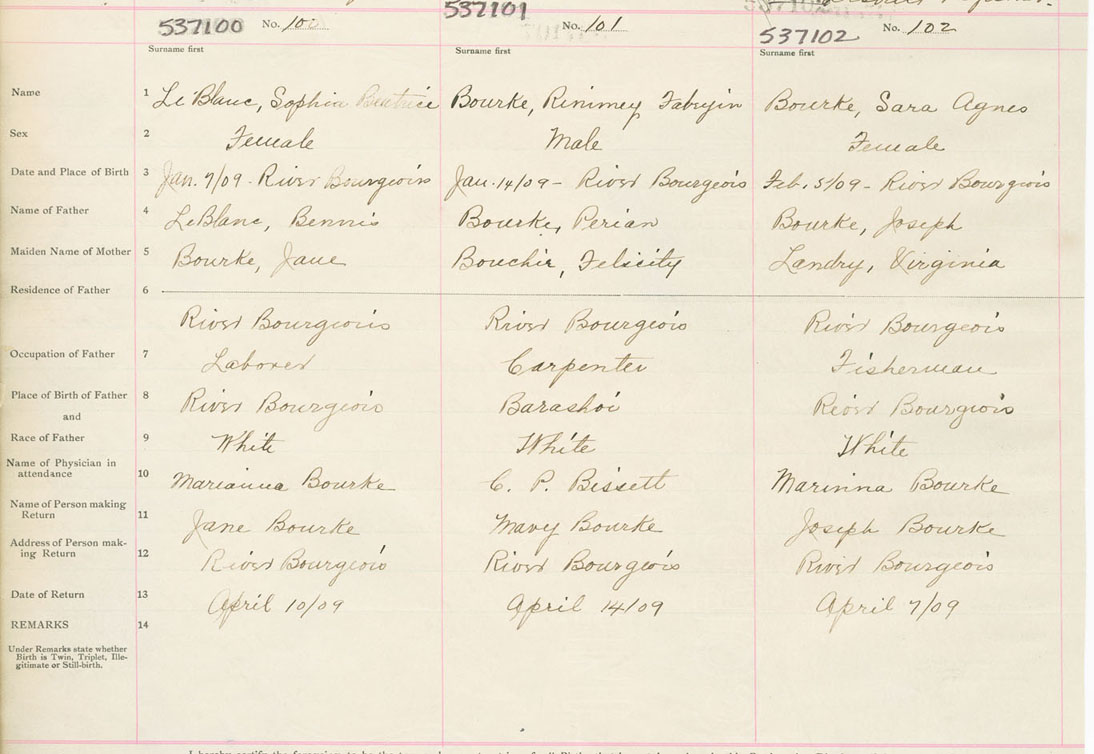 537100 No. 100 537101 No. 101 537102 No. 102
Surname first Surname first Surname first
Name 1 Le Blanc, Sophia Beatrice Bourke, Rinimey Fabyin Bourke, Sara Agnes
Sex 2 Female Male Female
Date and Place of Birth 3 Jan. 7/09 - River Bourgeois Jan. 14/09 - River Bourgeois Feb. 5/09 - River Bourgeois
Name of Father 4 LeBlanc, Bennis Bourke, Perian Bourke, Joseph
Maiden Name of Mother 5 Bourke, Jane Bouchir, Felicity Landry, Virginia
Residence of Father 6
River Bourgeois River Bourgeois River Bourgeois
Occupation of Father 7 Laborer Carpenter Fisherman
Place of Birth of Father 8 River Bourgeois Barashoi River Bourgeois
and
Race of Father 9 White White White
Name of Physician in
attendance 10 Marianna Bourke C. P. Bissett Marinna Bourke
Name of Person making
Return 11 Jane Bourke Mary Bourke Joseph Bourke
Address of Person mak-
ing Return 12 River Bourgeois River Bourgeois River Bourgeois
Date of Return 13 April 10/09 April 14/09 April 7/09
REMARKS 14
Under Remarks state whether
Birth is Twin, Triplet, Ille-
gitimate or Still-birth.